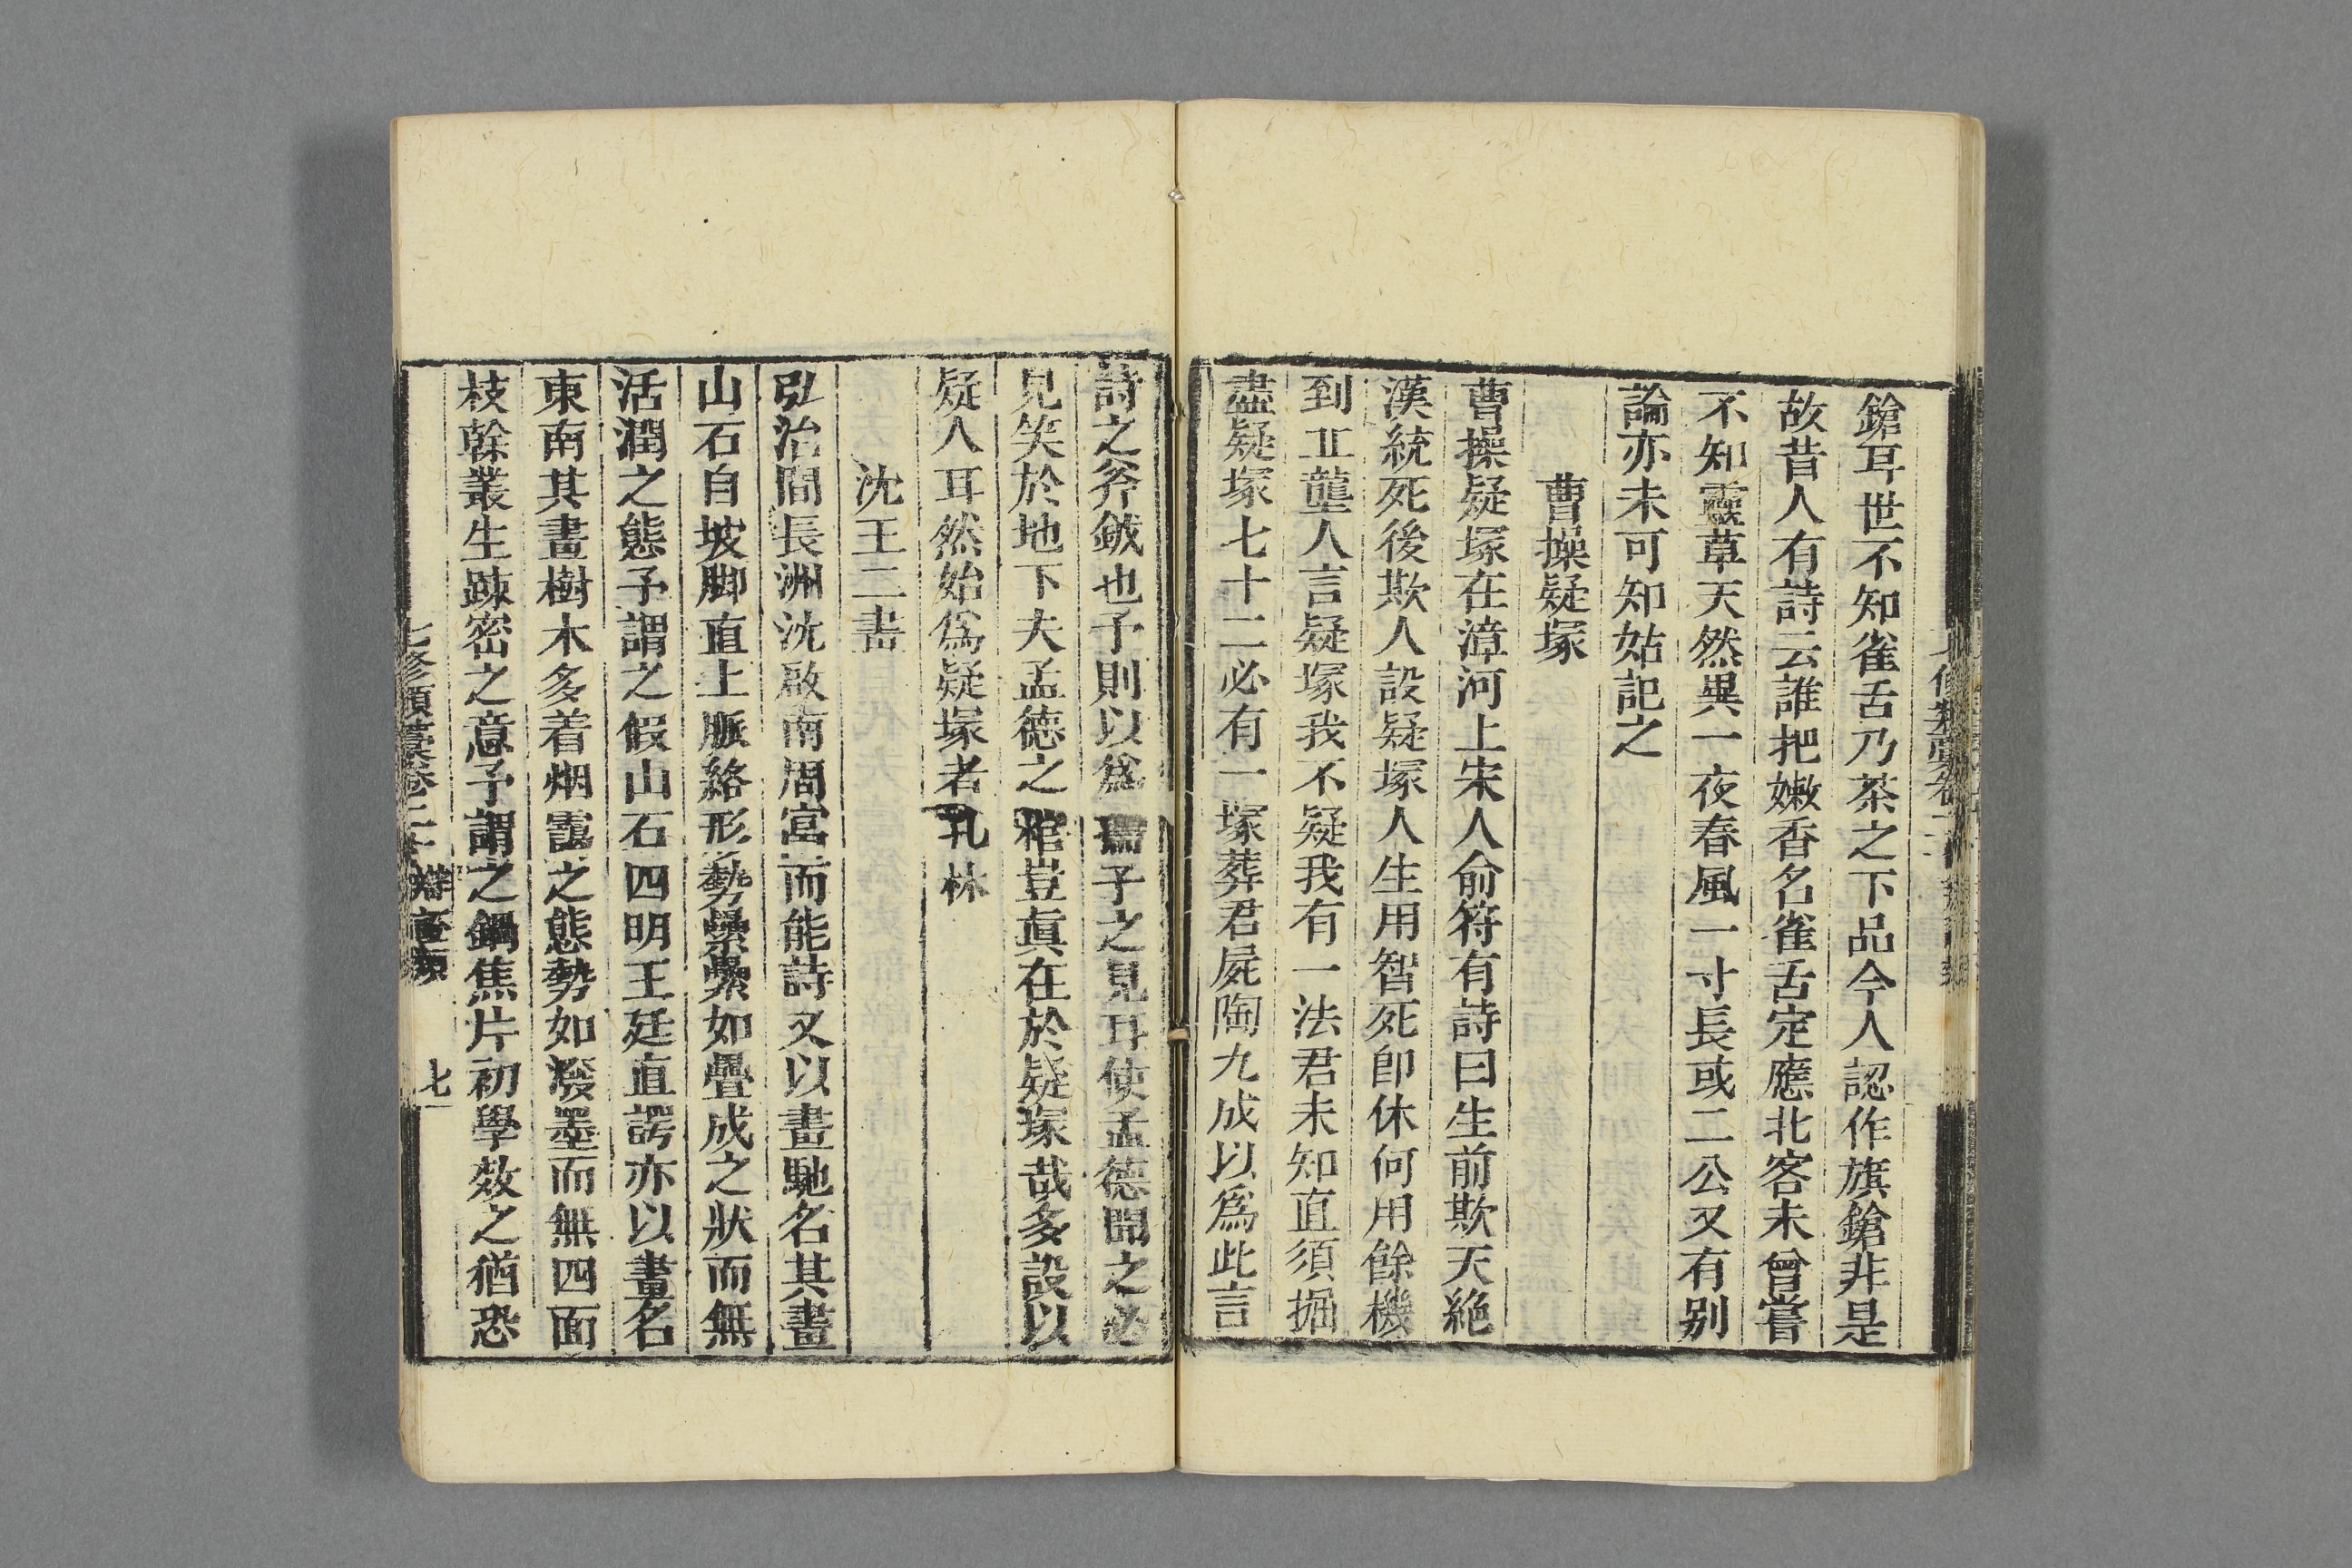 鎗耳世不知雀舌乃茶之下品今人認作旗鎗非是
故昔人有詩云誰把嫩香名雀舌定應北客未曾嘗
不知靈草天然異一夜春風一寸長或二公又有别
論亦未可知姑記之
曹操疑塚
曹操疑塚在漳河上宋人俞符有詩曰生前欺天絶
漢統死後欺人設疑塚人生用智死卽休何用餘機
到丘壟人言疑塚我不疑我有一法君未知直須掘
盡疑塚七十二必有一塚葬君屍陶九成以爲此言
詩之斧鉞也予則以爲孺子之見耳使孟德聞之必
見笑於地下夫孟德之棺豈眞在於疑塚哉多設以
疑人耳然始爲疑塚者孔林
沈王二畵
弘治間長洲沈啟南周富而能詩又以畫馳名其畫
山石自坡脚直上脈絡形勢纍纍如疊成之狀而無
活潤之態予謂之假山石四明王廷直諤亦以畫名
東南其畫樹木多着烟靄之態勢如潑墨而無四面
枝幹叢生踈密之意予謂之鍋焦片初學效之猶恐
七修類藁卷二十 辯證類 七